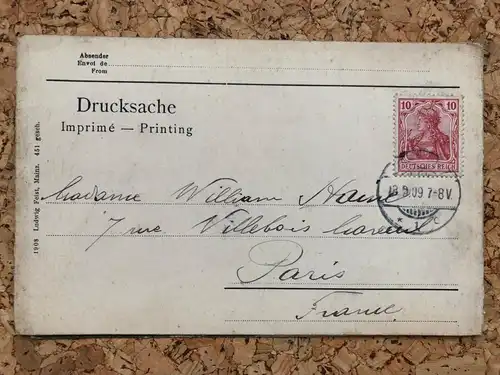 Absender
Envoi de
From
Drucksache
Imprimé — Printing
10 10
DEUTSCHES REICH
09 7-8V.
1908 Ludwig Feist, Mainz. 451 gesch.
Madame William
7 rue Villebois Mareuil
Paris
France